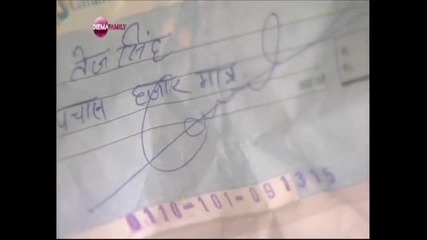 DIEMA FAMILY
तेज सिंह
पचास हजार मात्र
0110-101-091315